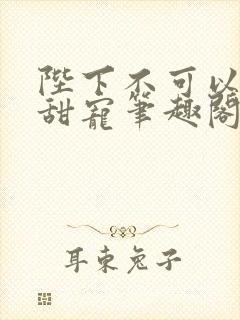 陛下不可以
甜寵筆趣閣
耳東兔子